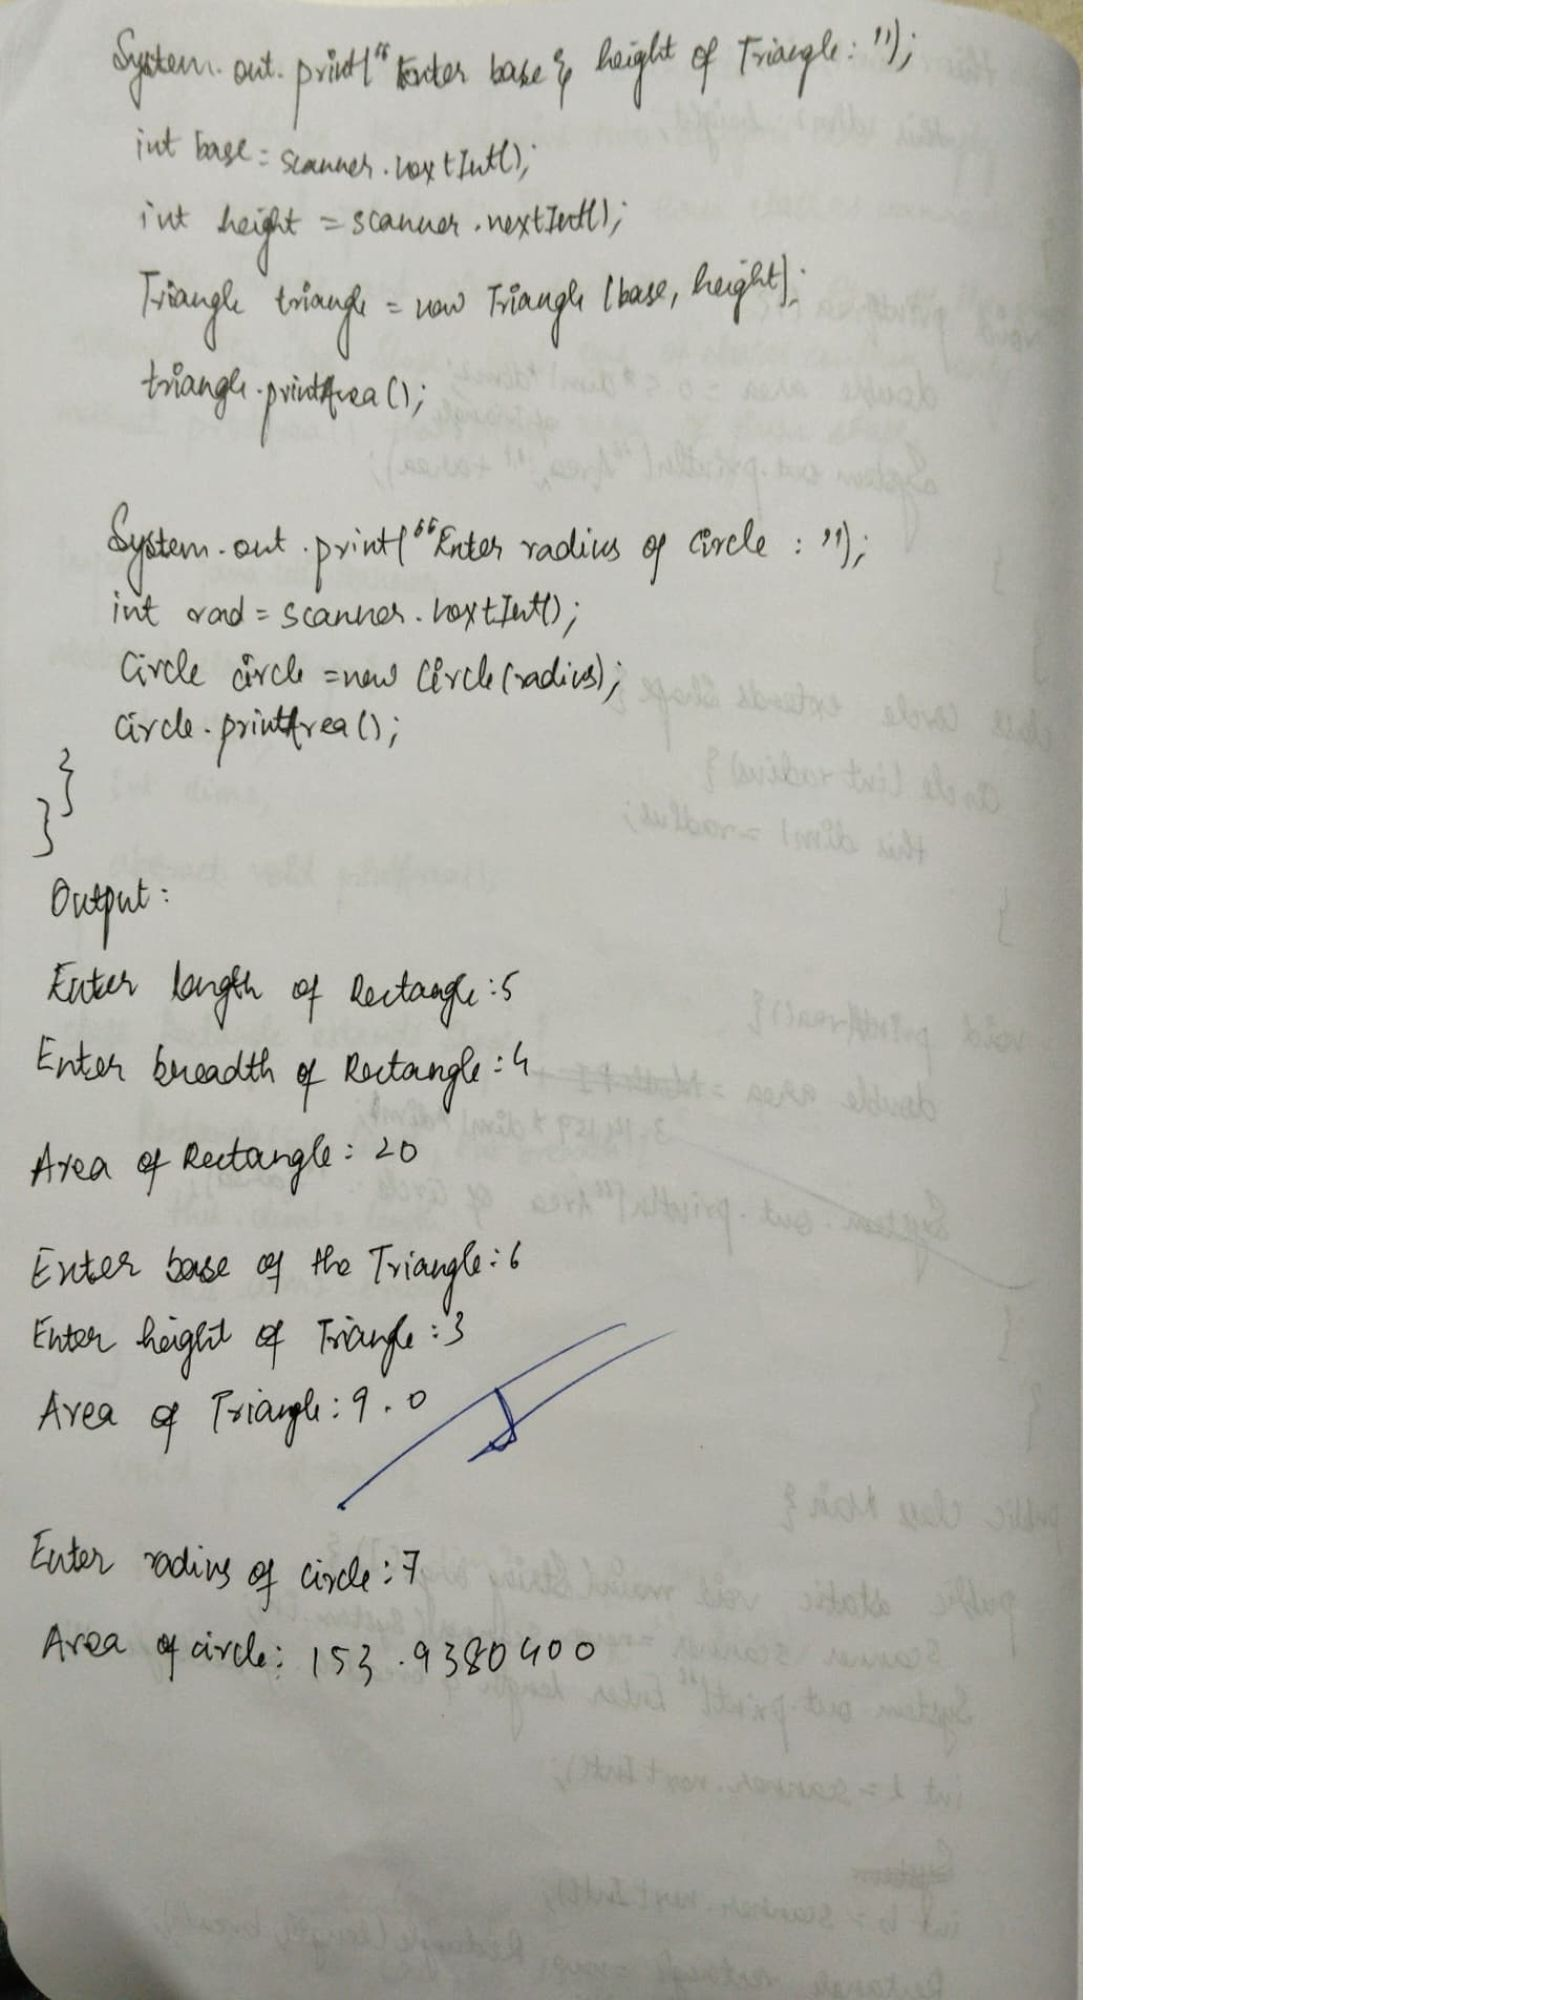 System.out.print("Enter base & height of Triangle: ");
int base = scanner.nextInt();
int height = scanner.nextInt();
Triangle triangle = new Triangle (base, height);
triangle.printArea();
System.out.print("Enter radius of circle : ");
int rad = scanner.nextInt();
Circle circle = new Circle(radius);
circle.printArea();
}
}
Output:
Enter length of Rectangle:5
Enter breadth of Rectangle:4
Area of Rectangle: 20
Enter base of the Triangle:6
Enter height of Triangle:3
Area of Triangle:9.0
Enter radius of circle:7
Area of circle: 153.9380400